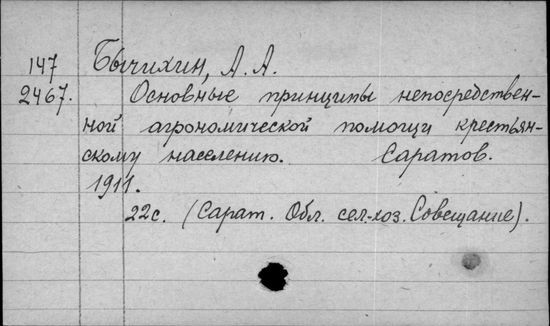 147 Бычихин, А. А.
2467. Основные принципы непосредствен-
ной агрономической помощи крестьян-
скому населению. Саратов.
1911.
22с. (Сарат. Обл. сел-хоз. Совещание).